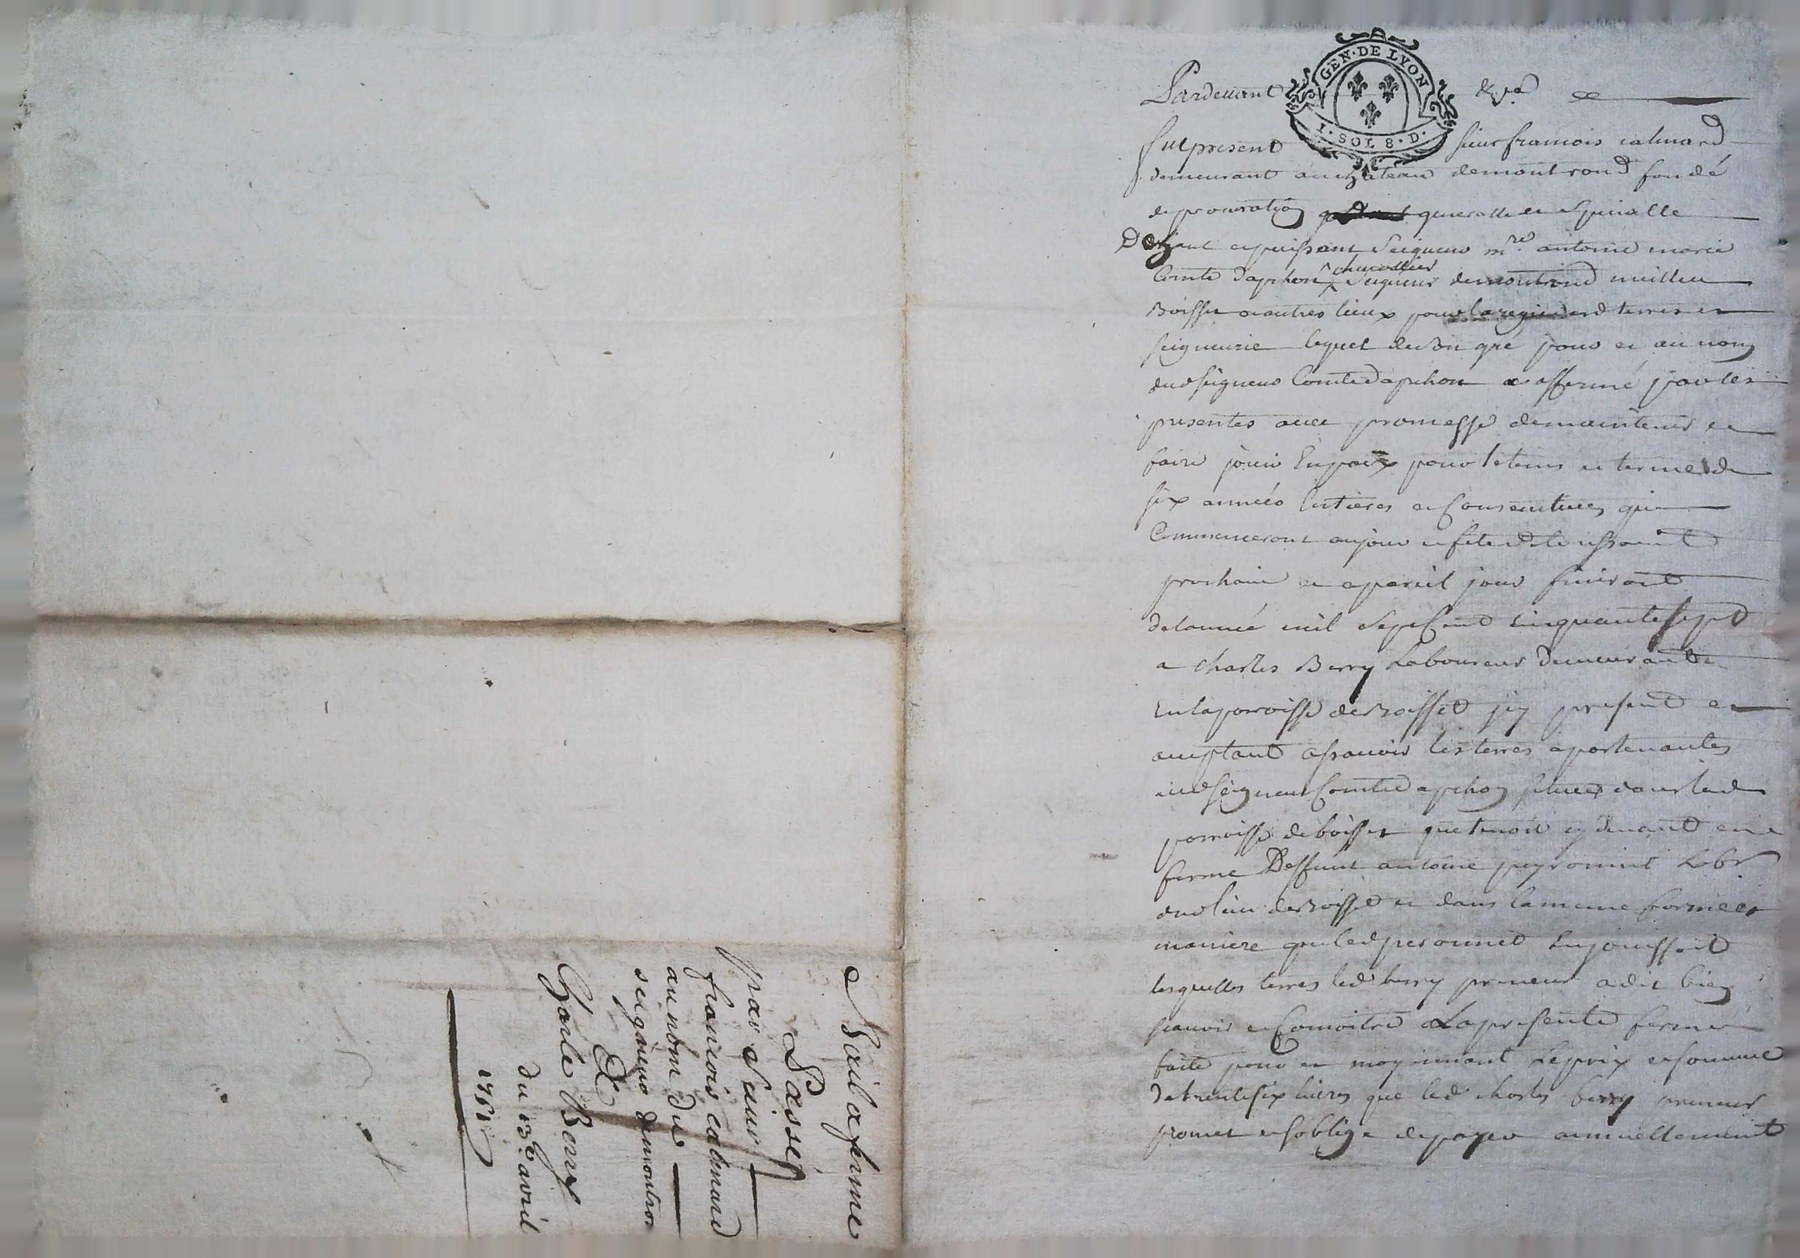 Pardevant
GEN · DE LYON
1 · SOL 8 · D ·
fut present sieur francois calmard
demeurant au chateau de montrond fondé
de procuration generalle et specialle
De haut et puissant Seigneur mre antoine marie
Comte Daphon chevallier Seigneur de montrond meillieu
Boisset et autres lieux pour la regie desd terres et
seigneurie lequel de son gré pour et au nom
dud seigneur Comte Dapchon a affermé par les
presentes avec promesse de maintenir et
faire jouir En paix pour le tems et terme de
six années Entieres et Consecutives qui
Commenceront au jour et fete de toussaint
prochain et a pareil jour finiront
de lannée mil Sept Cent cinquante sept
a Charles Berry Laboureur Demeurant
En la parroisse de Boisset icy present et
acceptant assavoir les terres apartenantes
aud Seigneur Comte Dapchon scituees dans lad
parroisse de boisset que tenoit cy devant en
ferme Deffunt antoine peyronnet Labr
dud lieu de Boisset et dans la meme forme et
maniere que led peronnet En jouissoit
lesquelles terres led berry preneur a dit bien
scavoir et Connoitre La presente ferme
faite pour et moyennant Le prix et somme
de trente six livres que led charles berry preneur
promet et soblige de payer annuellement
Bail a ferme
Passé
par Sieur
francois calmard
au nom du
seigneur de montron
A
Charle Berry
du 13e avril
1751